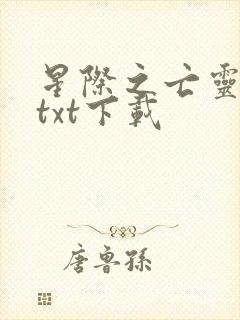 星際之亡靈
txt下載
唐魯孫